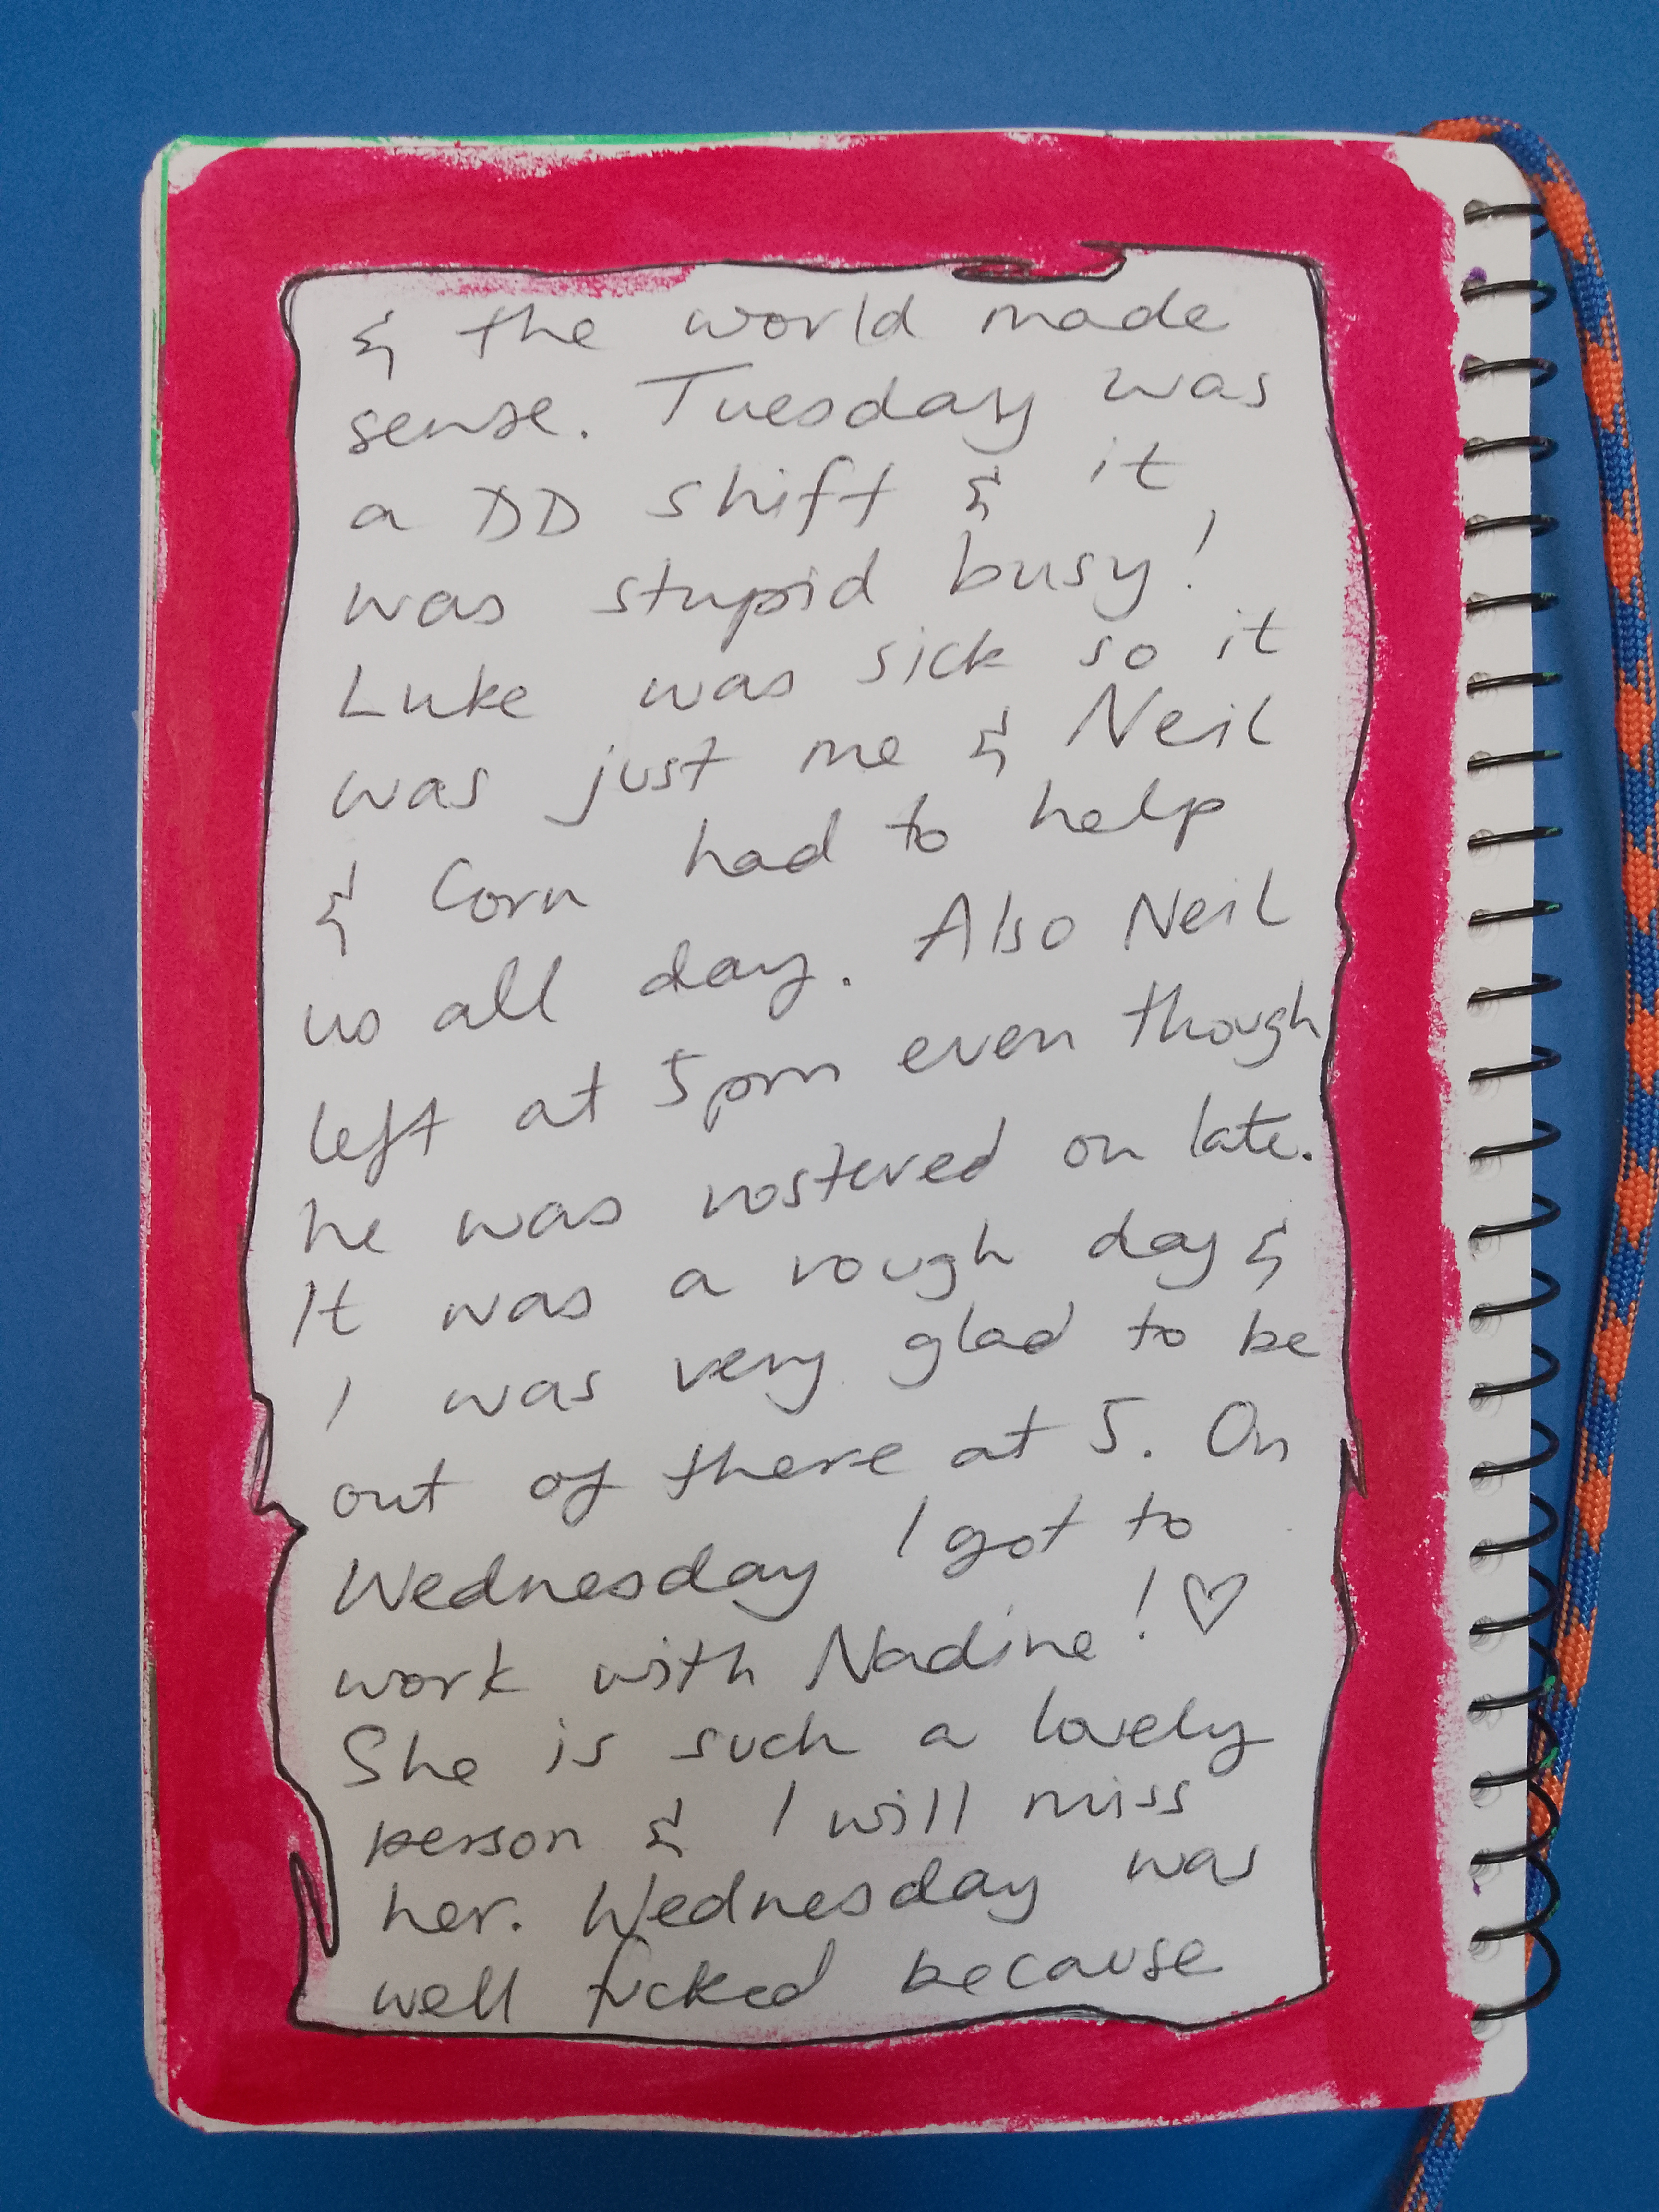 & the world made
sense. Tuesday was
a DD shift & it
was stupid busy!
Luke was sick so it
was just me & Neil
& Corn had to help
us all day. Also Neil
left at 5pm even though
he was rostered on late.
It was a rough day &
I was very glad to be
out of there at 5. On
Wednesday I got to
work with Nadine! ♡
She is such a lovely
person & I will miss
her. Wednesday was
well fucked because